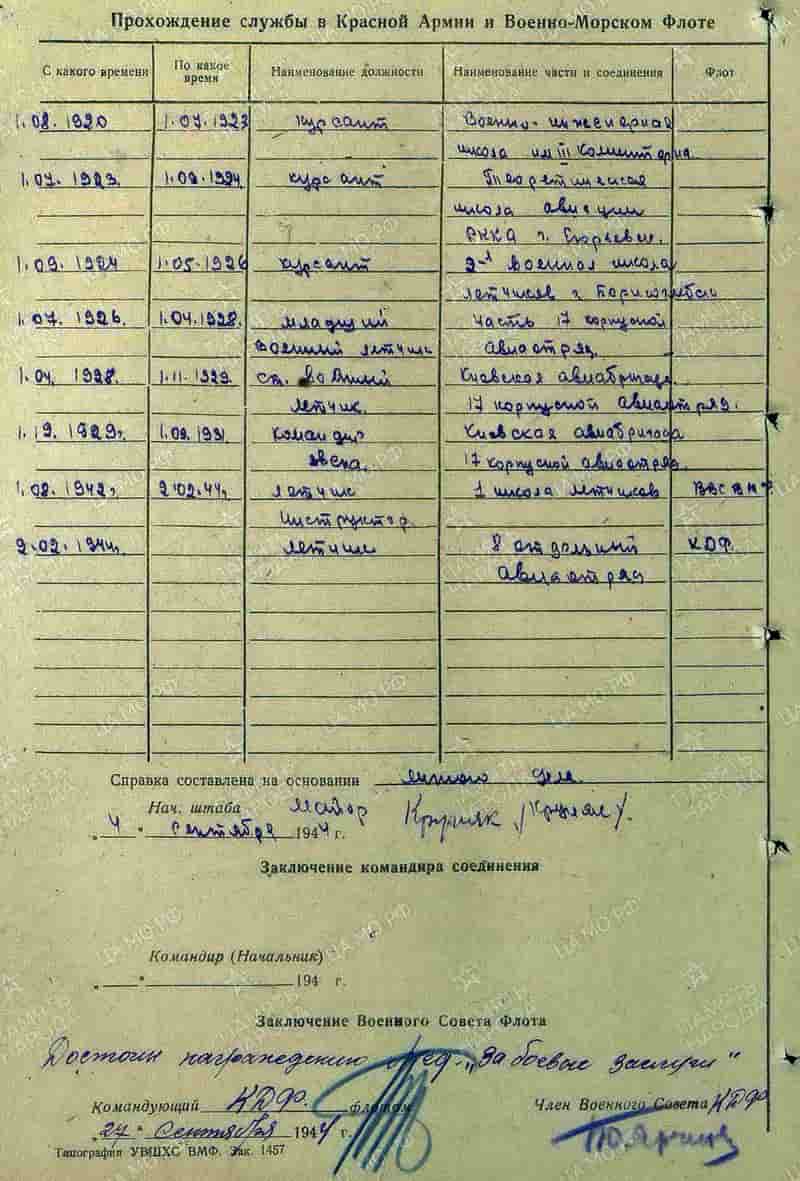 Прохождение службы в Красной Армии и Военно-Морском Флоте
С какого времени По какое время Наименование должности Наименование части и соединения Флот
1.08.1920 1.07.1923 курсант Военно-инженерная
школа им III Коминтерна
1.07.1923. 1.09.1924. курсант Теоретическая
школа авиации
РККА г. Егорьевск.
1.09.1924 1.05.1926 курсант 2-я военная школа
летчиков г Борисоглебск
1.07.1926. 1.04.1928. младший часть 17 корпусной
военный летчик авиаотряд.
1.04.1928. 1.11.1929. ст. военный Киевская авиабригада.
летчик. 17 корпусной авиаотряд.
1929г. 1.09.1931. командир Киевская авиабригада
звена. 17 корпусной авиаотряд.
1.08.1942г 2.02.44г. летчик 1 школа летчиков ВВС ВМФ
инструктор.
2.02.1944г. летчик 8 отдельный КДФ.
авиаотряд
Справка составлена на основании личного дела.
Нач. штаба майор
„4“ сентября 1944 г.
Заключение командира соединения
Командир (Начальник)
„ “ 194 г.
Заключение Военного Совета Флота
Достоин награждению мед. „За боевые заслуги“
Командующий КДФ. флотом Член Военного Совета КДФ
„27“ Сентября 1944 г.
Типография УВИЦХС ВМФ. Зак. 1457
ЦА МО РФ